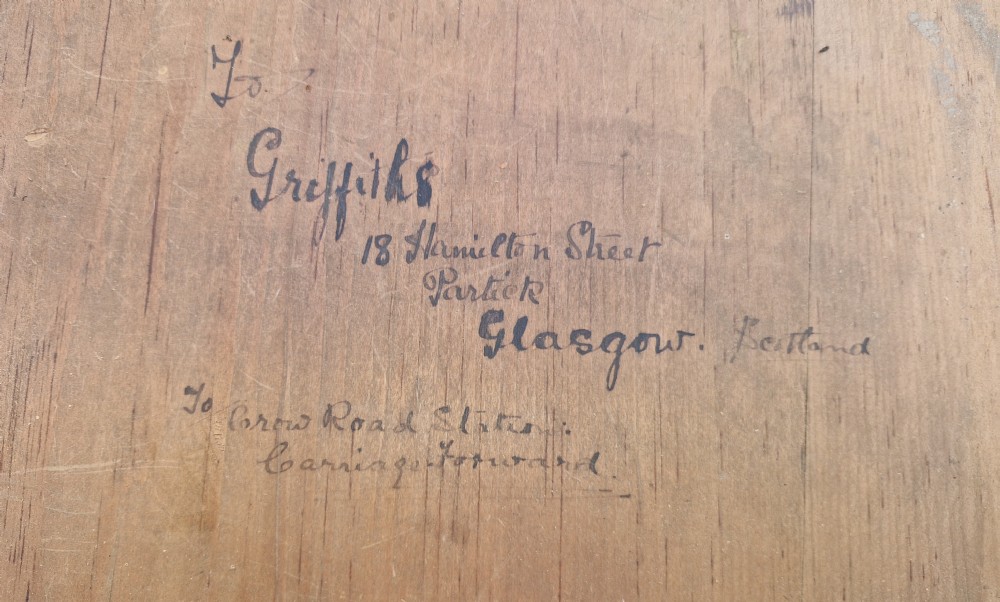 To
Griffiths
18 Hamilton Street
Partick
Glasgow. Scotland
To Crow Road Station.
Carriage Forward.